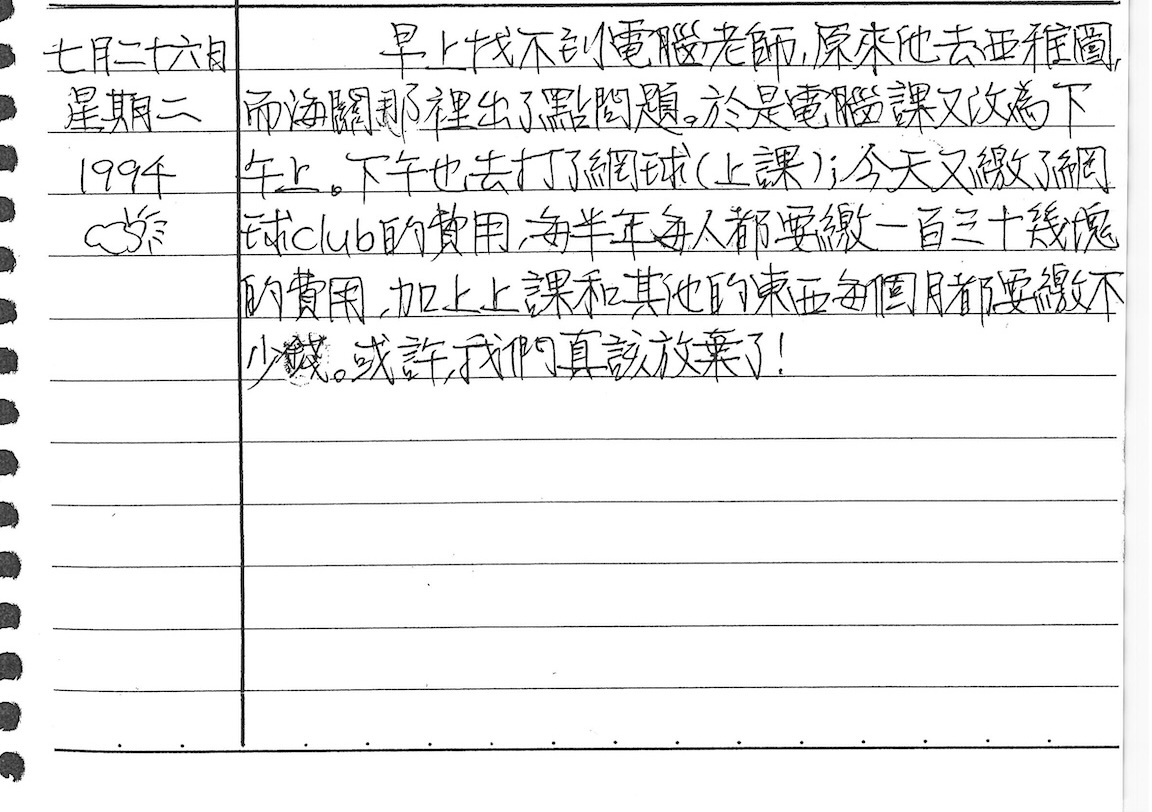 七月二十六日
星期二
1994
早上找不到電腦老師,原來他去西雅圖,
而海關那裡出了點問題。於是電腦課又改為下
午上。下午也去打了網球(上課);今天又繳了網
球club的費用,每半年每人都要繳一百三十幾塊
的費用,加上上課和其他的東西每個月都要繳不
少錢。或許,我們真該放棄了!